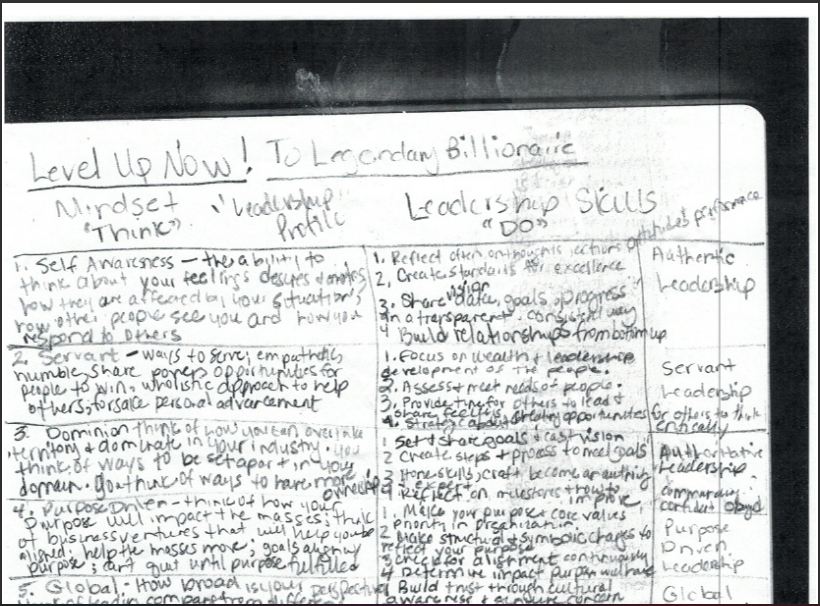 Level Up Now! To Legendary Billionaire
Mindset "Leadership Leadership Skills
"Think" Profile "DO"
1. Self Awareness - the ability to
think about your feelings desires &
how they are affected by your situations,
how other people see you and how you
respond to others
1. Reflect often on thoughts, actions attitudes performance
2. Create standards for excellence
3. Share vision data, goals, progress
in a transparent, consistent way
4 Build relationships from bottom up
Authentic
Leadership
2. Servant - ways to serve; empathetic,
humble, share power opportunities for
people to win, wholistic approach to help
others; forsake personal advancement
1. Focus on wealth & leadership
development of the people.
2. Assess & meet needs of people.
3. Provide time for others to lead &
share
4. Strategic about creating opportunities for others to think
critically
Servant
Leadership
3. Dominion think of how you can overtake
territory & dominate in your industry. you
think of ways to be set apart in your
domain. you think of ways to have more
ownership
1 Set & share goals & cast vision
2 Create steps & process to meet goals
3 Hone skills, craft become an authority
& expert
4 Reflect on milestones
improve
Authoritative
Leadership
commanding
confident
4. Purpose Driven - think of how your
Purpose will impact the masses; think
of business ventures that will help you be
aligned; help the masses more; goals align w/
purpose; can't quit until purpose fulfilled
1. Make your purpose & core values
priority in organization.
2 Make structural & symbolic changes to
reflect your purpose
3 Check for alignment continuously
4 Determine impact purpose
Purpose
Driven
Leadership
5. Global: How broad is your perspective
Build trust through cultural
awareness & concern
Global